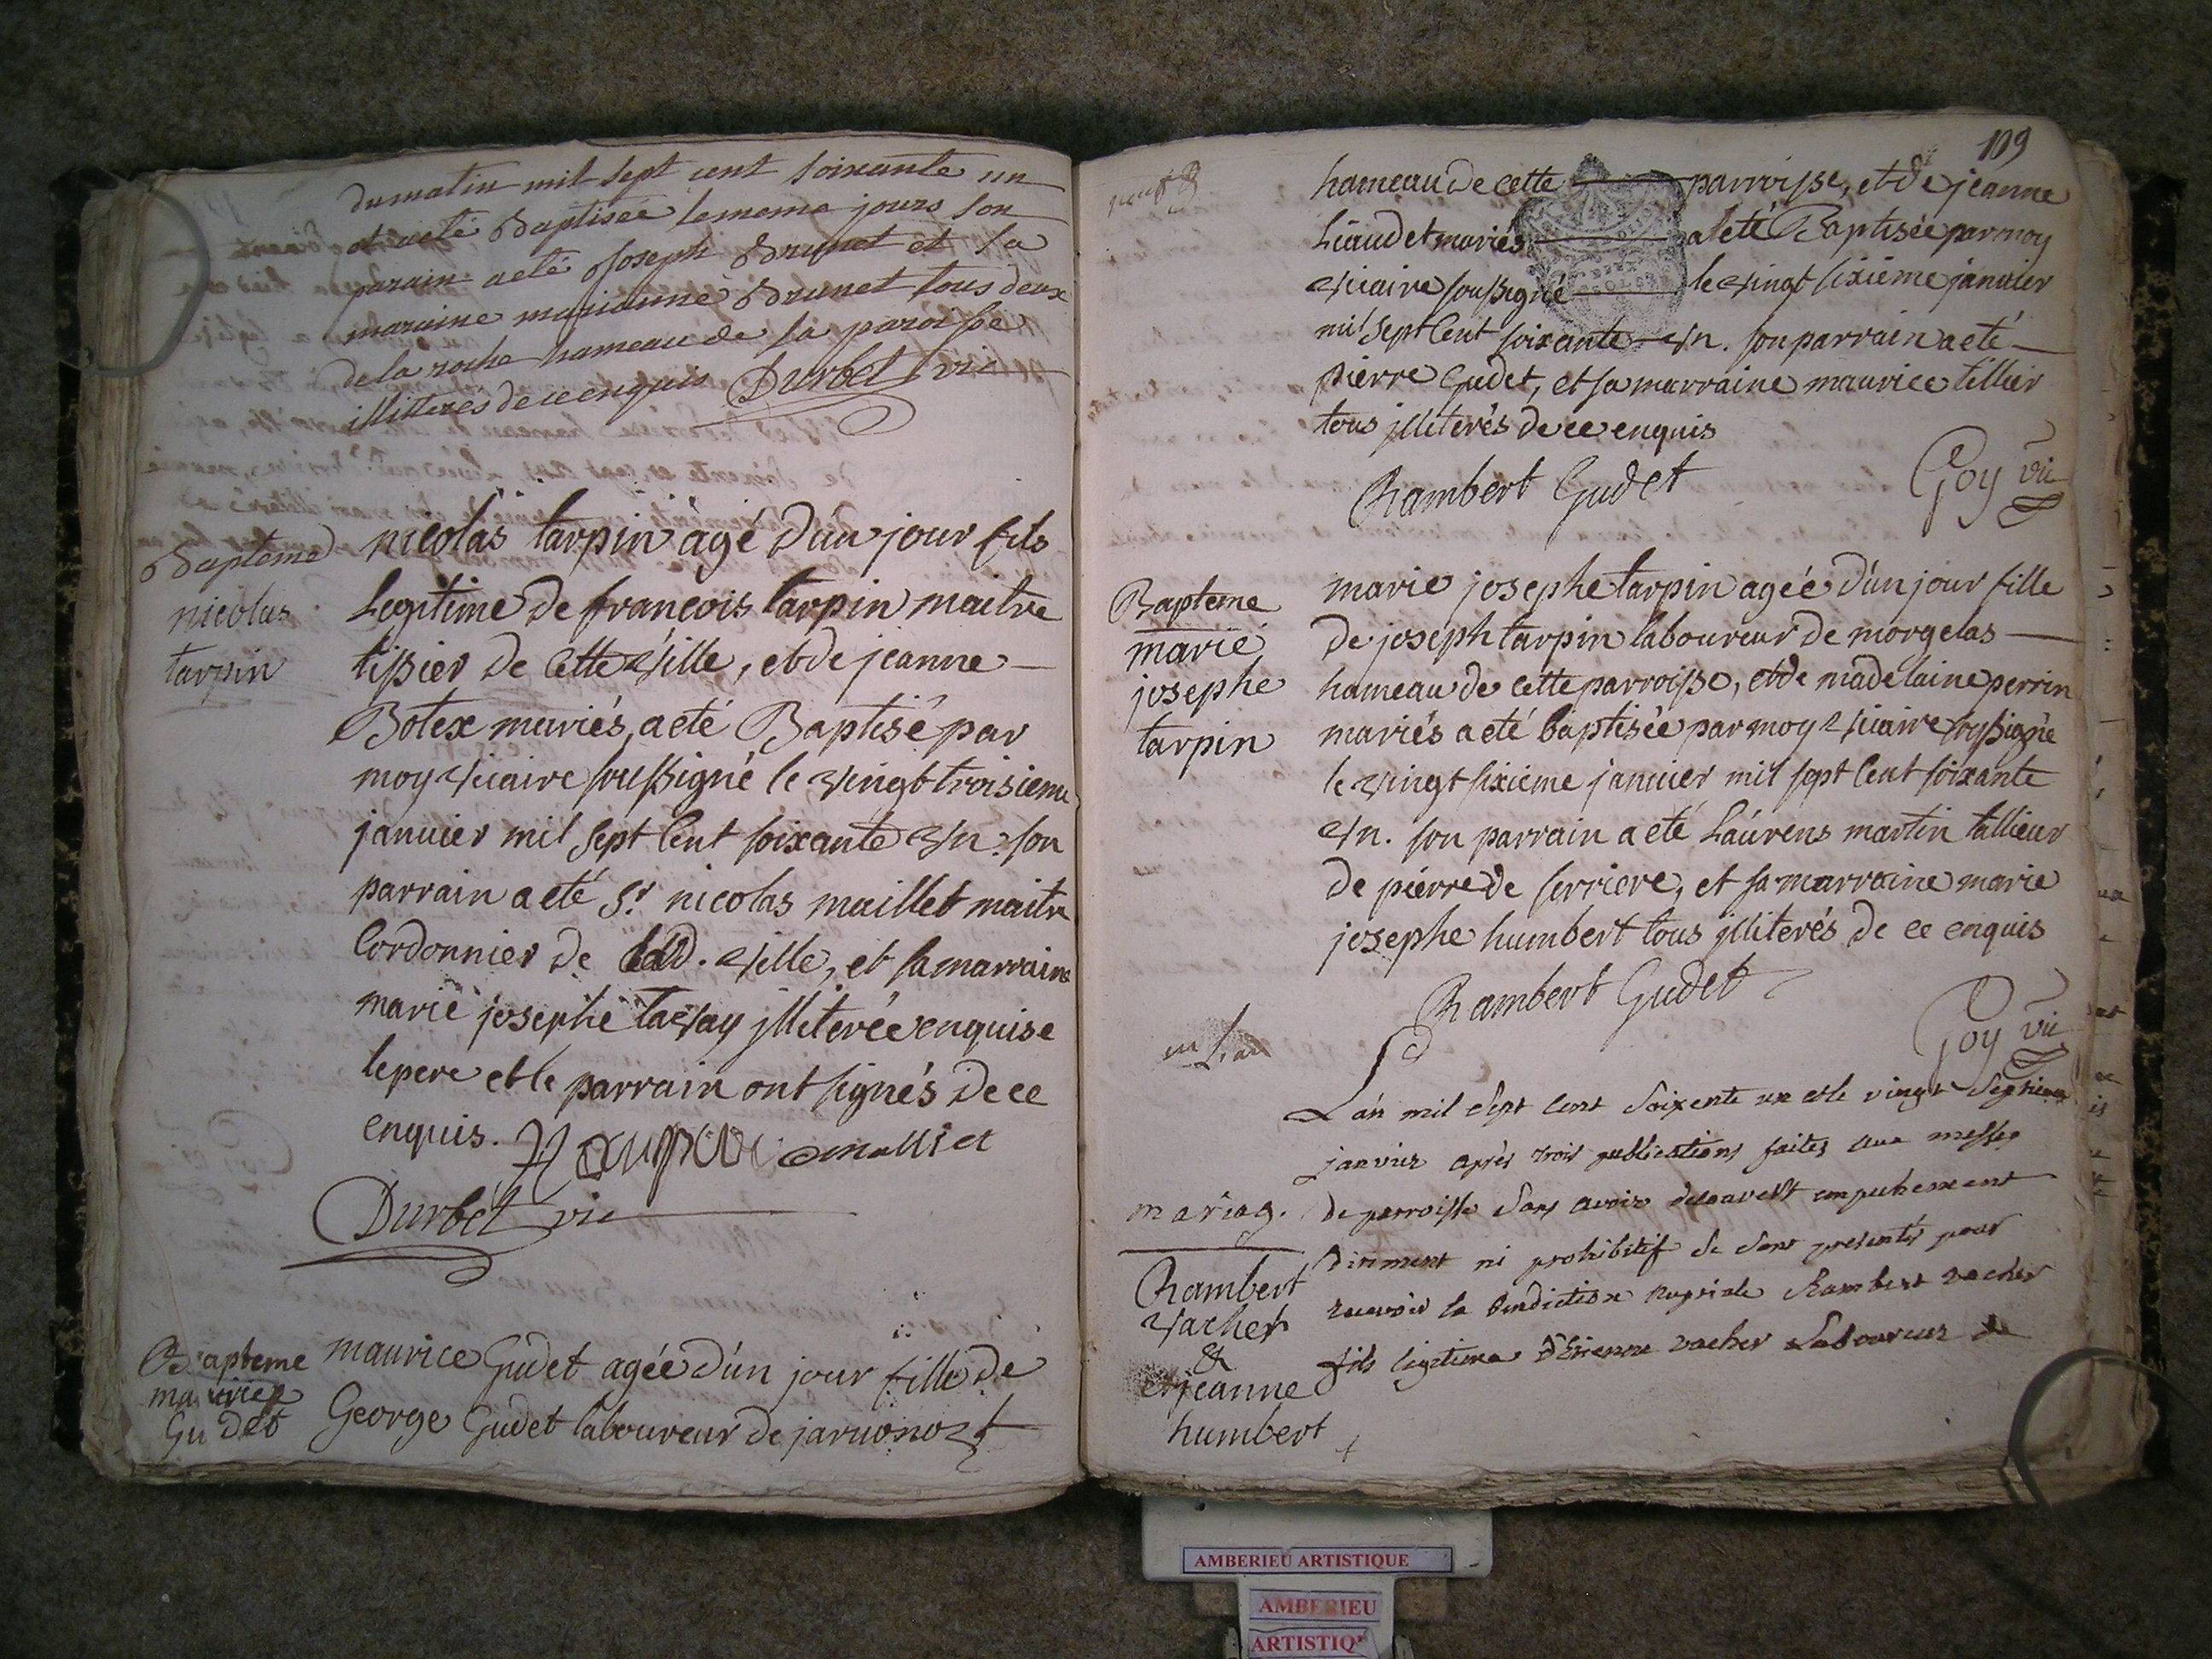 du matin mil sept cent soixante un
et a eté Baptisée le meme jours son
parain a eté Joseph Brunet et sa
maraine marianne Brunet tous deux
de la roche hameau de la paroisse
illitterés de ce enquis Durbet vic
Bapteme
nicolas
tarpin
nicolas tarpin àgé d'un jour fils
Legitime de francois tarpin maitre
tissier de Cette ville, et de jeanne
Botex mariés, a eté Baptisé par
moy vicaire soussigné le vingt troisieme
januier mil sept Cent soixante vn. son
parrain a eté Sr. nicolas maillet maitre
Cordonnier de lad. ville, et sa marraine
marie josephe tavay jlliterée enquise
le pere et le parrain ont signés de ce
enquis.
malliet
Durbet vic
Bapteme
maurice
Gudet
maurice Gudet agée d'un jour fille de
George Gudet laboureur de jaruonoz
109
hameau de cette parroisse, et de jeanne
Liaudet mariés a eté Baptisée par moy
vicaire soussigné le vingt sixième januier
mil sept Cent soixante vn. son parrain a eté
pierre Gudet, et sa marraine maurice tillier
tous jlliterés de ce enquis
Rambert Gudet Goy vic
Bapteme
marie
josephe
tarpin
marie josephe tarpin agée d'un jour fille
de joseph tarpin laboureur de morgelas
hameau de cette parroisse, et de madelaine perrin
mariés a eté baptisée par moy vicaire soussigné
le vingt sixieme januier mil sept Cent soixante
vn. son parrain a eté Laurens martin tallieur
de pierre de serriere, et sa marraine marie
josephe humbert tous jlliterés de ce enquis
Rambert Gudet
Goy vic
mariag.
Rambert
vacher
&
et jeanne
humbert
L'an mil sept cent soixente un et le vingt septieme
janvier après trois publications faites aux messes
de parroisse sans avoir decouvert empechement
diriment ni prohibitif se sont presentés pour
recevoir la benediction nuptiale Rambert vacher
fils legitime d'Etienne vacher Laboureur de
AMBERIEU ARTISTIQUE
AMBERIEU
ARTISTIQ